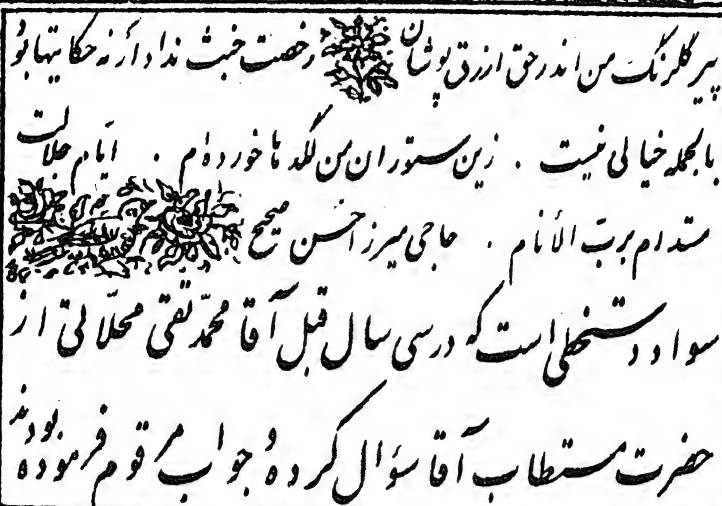 پیر گلرنگ من اندر حق ازرق پوشان رخصت خبث نداد ار نه حکایتها بود
بالجمله خیالی نیست . زین ستوران من لگدها خورده‌ام . ایام جلالت
مستدام برب الأنام . حاجی میرزا حسن صحیح
سواد دستخطی است که در سی سال قبل آقا محمّد تقی محلّاتی از
حضرت مستطاب آقا سؤال کرده و جواب مرقوم فرموده بودند